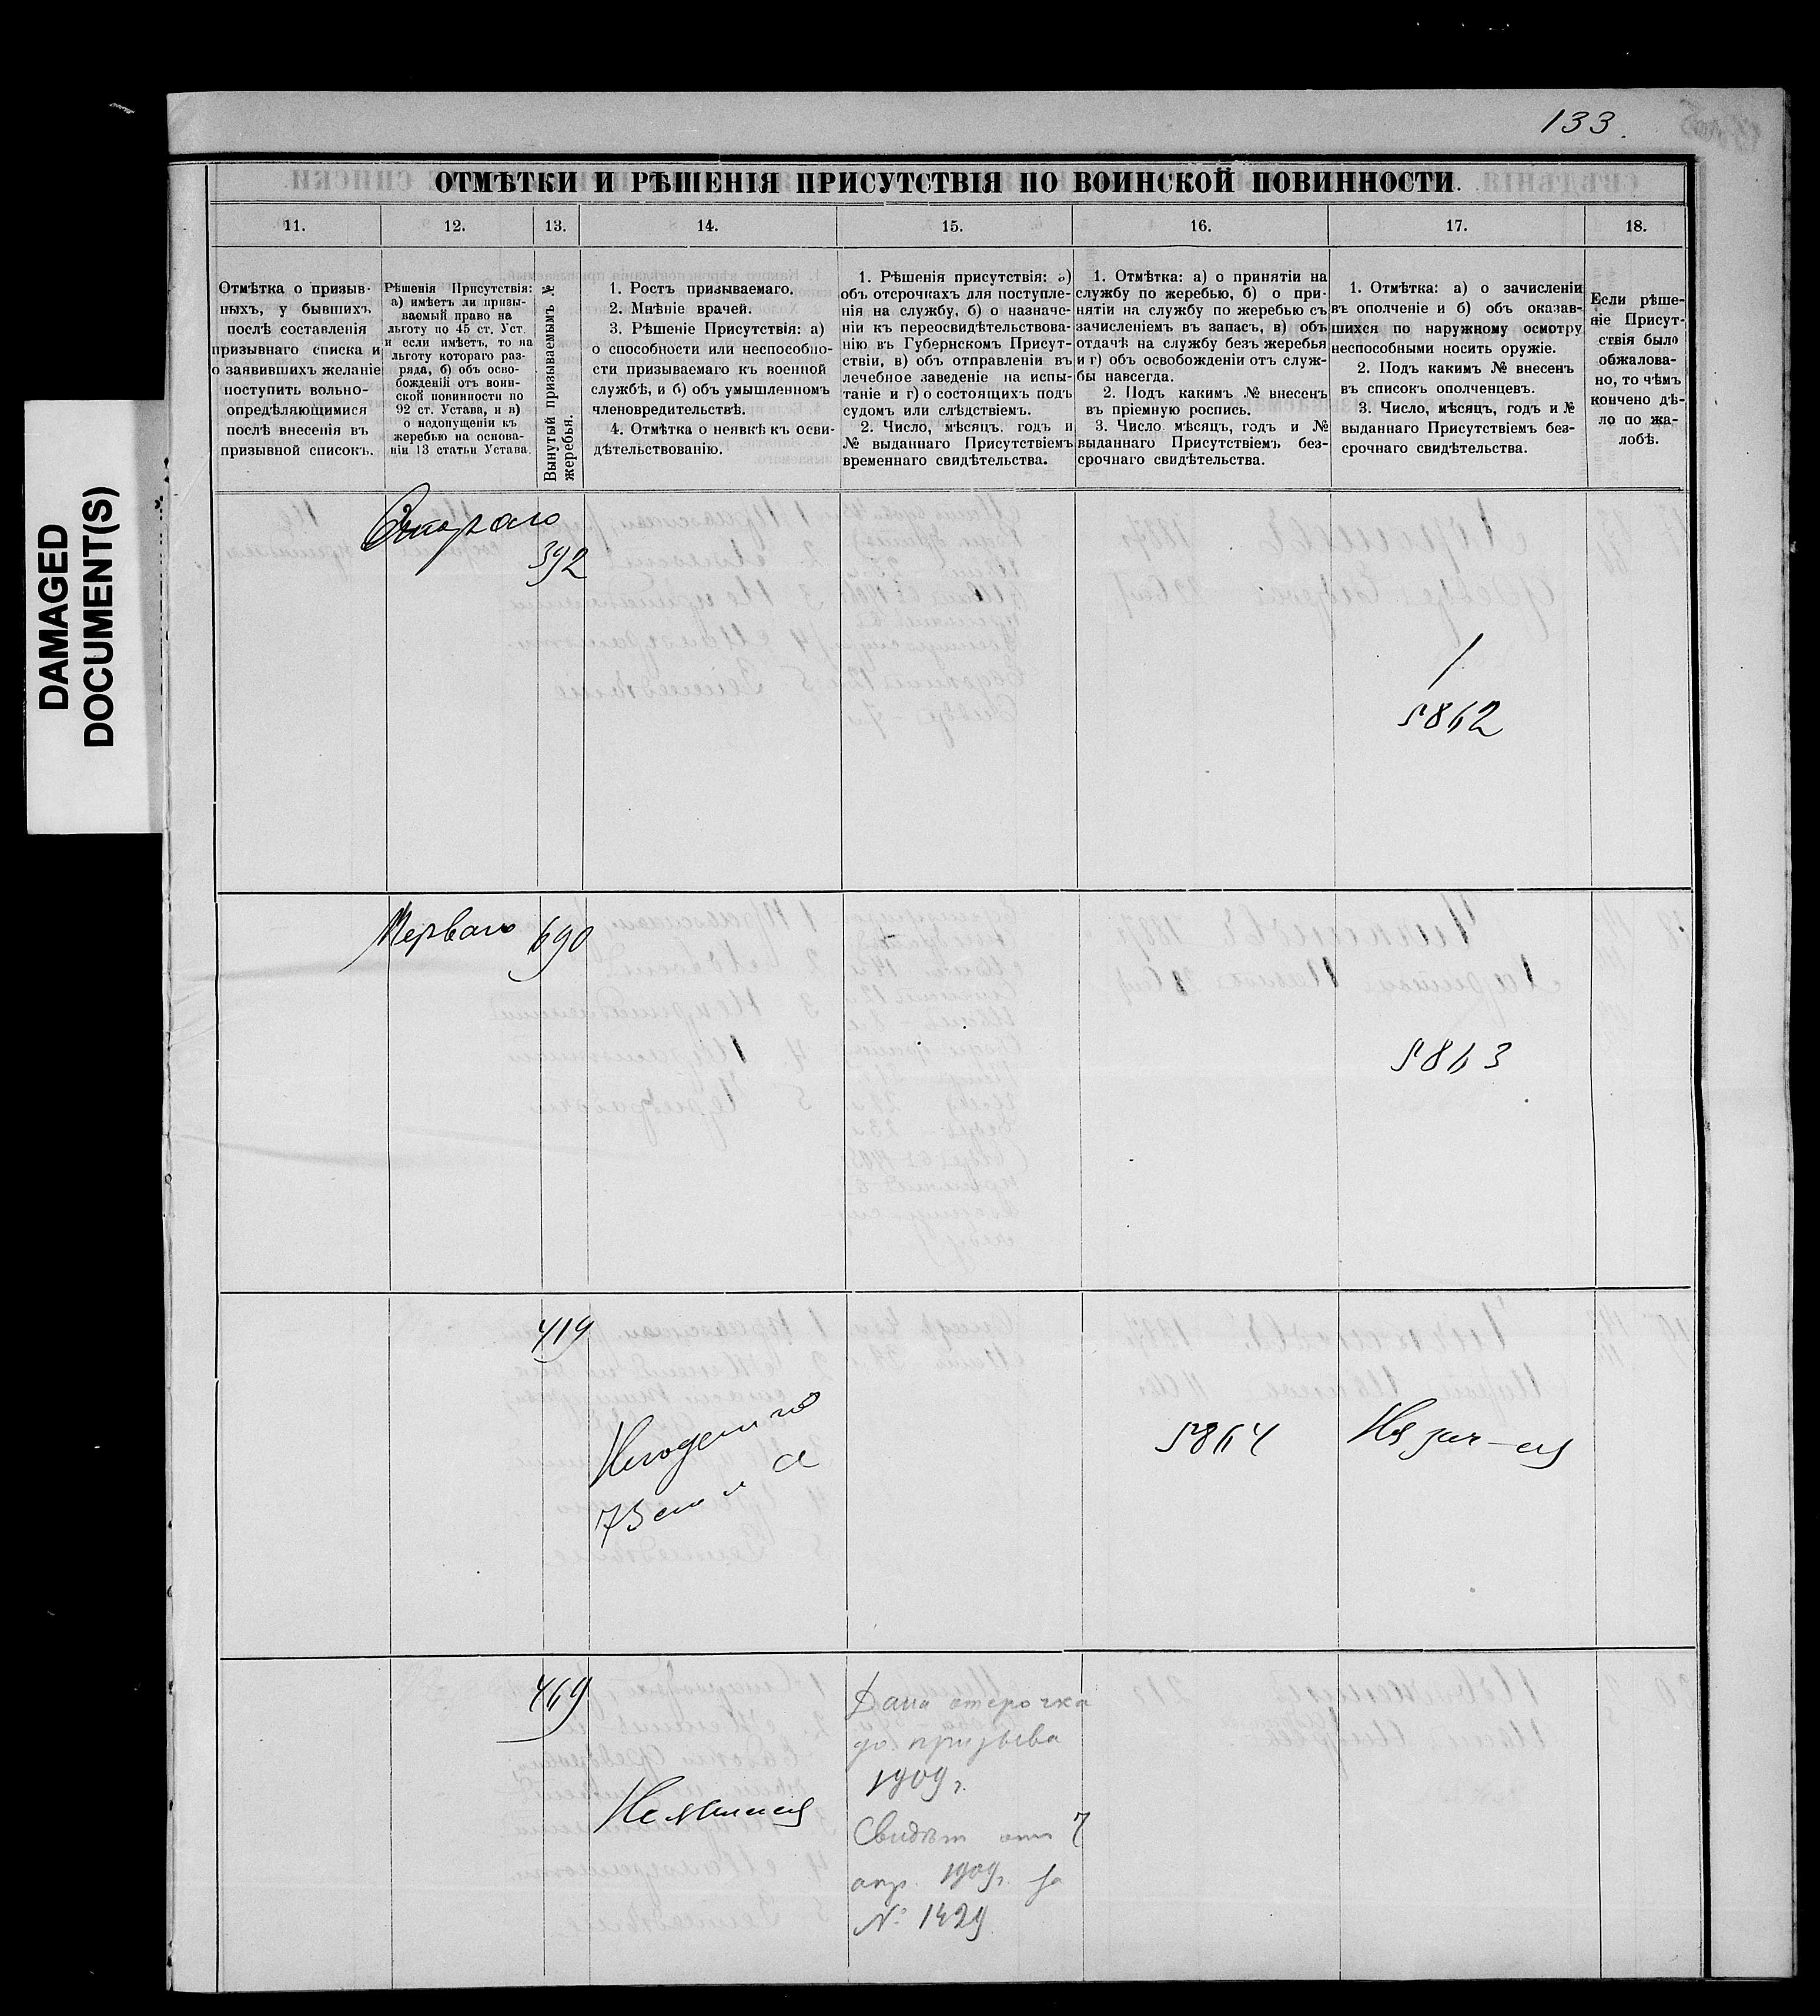 133.
DAMAGED
DOCUMENT(S)
ОТМѢТКИ И РѢШЕНІЯ ПРИСУТСТВІЯ ПО ВОИНСКОЙ ПОВИННОСТИ.
11.
12.
13.
14.
15.
16.
17.
18.
Отмѣтка о призыв-
ныхъ, у бывшихъ
послѣ составленія
призывнаго списка и
о заявившихъ желаніе
поступить вольно-
опредѣляющимися
послѣ внесенія въ
призывной списокъ.
Рѣшенія Присутствія:
а) имѣетъ ли призы-
ваемый право на
льготу по 45 ст. Уст.
и если имѣетъ, то на
льготу котораго раз-
ряда, б) объ осво-
божденіи отъ воин-
ской повинности по
92 ст. Устава, и в)
о недопущеніи къ
жеребью на основа-
ніи 13 статьи Устава.
Вынутый призываемымъ №
жеребья.
1. Ростъ призываемаго.
2. Мнѣніе врачей.
3. Рѣшеніе Присутствія: а)
о способности или неспособно-
сти призываемаго къ военной
службѣ, и б) объ умышленномъ
членовредительствѣ.
4. Отмѣтка о неявкѣ къ осви-
дѣтельствованію.
1. Рѣшенія присутствія: а)
объ отсрочкахъ для поступле-
нія на службу, б) о назначе-
ніи къ переосвидѣтельствова-
нію въ Губернскомъ Присут-
ствіи, в) объ отправленіи въ
лечебное заведеніе на испы-
таніе и г) о состоящихъ подъ
судомъ или слѣдствіемъ.
2. Число, мѣсяцъ. годъ и
№ выданнаго Присутствіемъ
временнаго свидѣтельства.
1. Отмѣтка: а) о принятіи на
службу по жеребью, б) о при-
нятіи на службу по жеребью съ
зачисленіемъ въ запасъ, в) объ
отдачѣ на службу безъ жеребья
и г) объ освобожденіи отъ служ-
бы навсегда.
2. Подъ какимъ № внесенъ
въ пріемную роспись.
3. Число мѣсяцъ, годъ и №
выданнаго Присутствіемъ без-
срочнаго свидѣтельства.
1. Отмѣтка: а) о зачисленіи
въ ополченіе и б) объ оказав-
шихся по наружному осмотру
неспособными носить оружіе.
2. Подъ какимъ № внесенъ
въ списокъ ополченцевъ.
3. Число, мѣсяцъ, годъ и №
выданнаго Присутствіемъ без-
срочнаго свидѣтельства.
Если рѣше-
ніе Присут-
ствія было
обжалова-
но, то чѣмъ
кончено дѣ-
ло по жа-
лобѣ.
Втораго
392
5862
Перваго 690
5863
419
5864
469
Дана отсрочка
до призыва
1909 г.
Неявился
Свидѣт отъ 7
апр. 1909 г. за
№ 1429